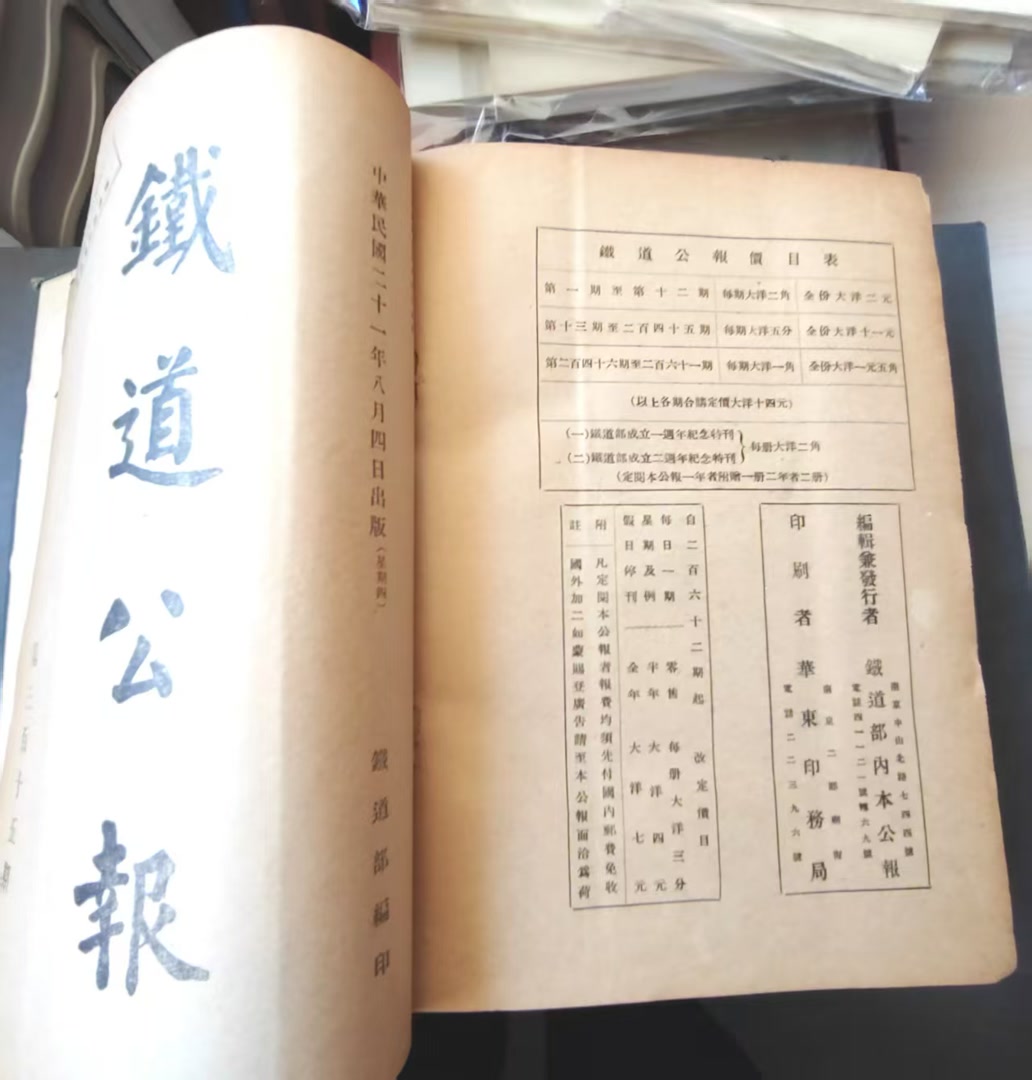 鐵道公報
中華民國二十一年八月四日出版(星期四)
鐵道部編印
鐵道公報價目表
第一期至第十二期 每期大洋二角 全份大洋二元
第十三期至二百四十五期 每期大洋五分 全份大洋十一元
第二百四十六期至二百六十一期 每期大洋一角 全份大洋一元五角
(以上各期合購定價大洋十四元)
(一)鐵道部成立一週年紀念特刊
(二)鐵道部成立二週年紀念特刊
每册大洋二角
(定閱本公報一年者附贈一册二年者二册)
編輯兼發行者 鐵道部內本公報
南京中山北路七四四號
電話四一一二一號轉六九號
印刷者 華東印務局
電話二二三九六號
自二百六十二期起改定價目
每日一期
星期及例
假日停刊
零售 每册大洋三分
半年 大洋四元
全年 大洋七元
附註
凡定閱本公報者報費均須先付國內郵費免收
國外加二如蒙賜登廣告請至本公報面洽爲荷